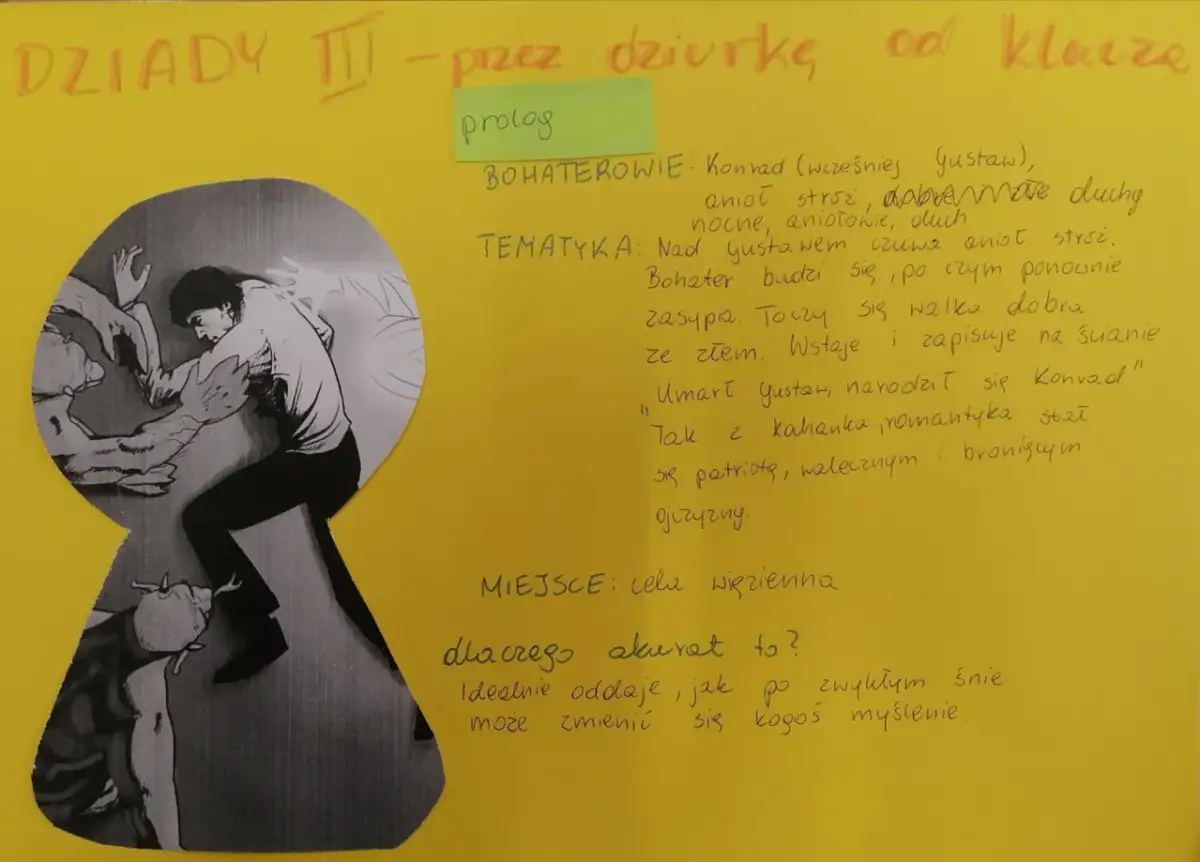 DZIADY III – przez dziurkę od klucza
prolog
BOHATEROWIE: Konrad (wcześniej Gustaw),
anioł stróż, duchy
nocne, aniołowie, duch
TEMATYKA: Nad Gustawem czuwa anioł stróż.
Bohater budzi się, po czym ponownie
zasypia. Toczy się walka dobra
ze złem. Wstaje i zapisuje na ścianie
„Umarł Gustaw, narodził się Konrad"
Tak z kochanka, romantyka stał
się patriotą, walecznym i broniącym
ojczyzny.
MIEJSCE: cela więzienna
dlaczego akurat to?
Idealnie oddaje, jak po zwykłym śnie
może zmienić się kogoś myślenie.